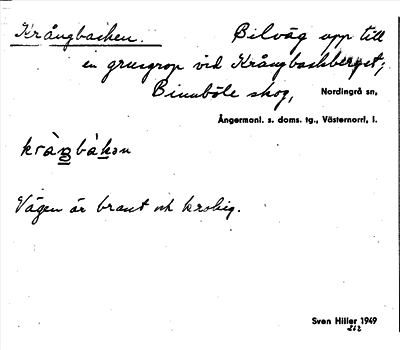 Krångbacken. Bilväg upp till
en grusgrop vid Krångbackberget,
Binnböle skog, Nordingrå sn,
Ångermanl. s. doms. tg., Västernorrl. l.
kràŋbàkən
Vägen är brant och krokig.
Sven Hiller 1949